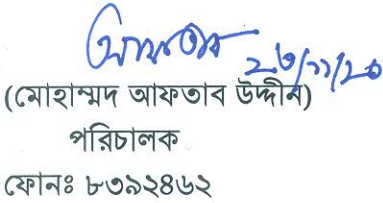 আফতাব
২৩/১১/২০
(মোহাম্মদ আফতাব উদ্দীন)
পরিচালক
ফোনঃ ৮৩৯২৪৬২